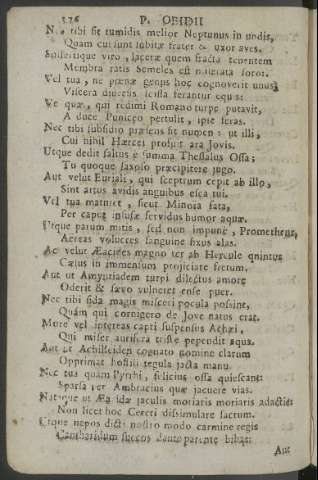 326 P. OBIDII
Nec tibi sit tumidis melior Neptunus in undis,
Quam cui sunt subitæ frater & uxor aves.
Solertique viro, laceræ quem fracta tenentem
Membra ratis Semeles est miserata soror.
Vel tua, ne pœnæ genus hoc cognoverit unus
Viscera diversis scissa ferantur equis:
Ve quæ, qui redimi Romano turpe putavit,
A duce Puniceo pertulit, ipse feras.
Nec tibi subsidio præsens sit numen: ut illi,
Cui nihil Hærcei profuit ara Jovis.
Utque dedit saltus è summa Thessalus Ossa;
Tu quoque saxoso præcipitere jugo.
Aut velut Euriali, qui sceptrum cepit ab illo,
Sint artus avidis anguibus esca tui.
Vel tua maturet, sicut Minoia fata,
Per caput infusæ fervidus humor aquæ.
Utque parum mitis, sed non impune, Prometheus,
Aereas volucres sanguine fixus alas.
Ac velut Æacides magno ter ab Hercule quintus
Cæsus in immensum projiciare fretum.
Aut ut Amyntiadem turpi dilectus amore
Oderit & sævo vulneret ense puer.
Nec tibi fida magis misceri pocula possint,
Quàm qui cornigero de Jove natus erat.
More vel intereas capti suspensus Achæi,
Qui miser aurifera triste pependit aqua.
Aut ut Achilleiden cognato nomine clarum
Opprimat hostili tegula jacta manu.
Nec tua quàm Pyrrhi, felicius ossa quiescant:
Sparsa per Ambracias quæ jacuere vias.
Natæque ut Æa idæ jaculis moriaris moriaris adactis:
Non licet hoc Cereri dissimulare sacrum.
Utque nepos dicti nostro modo carmine regis
Cantharidum succos dante parente bibas:
Aut